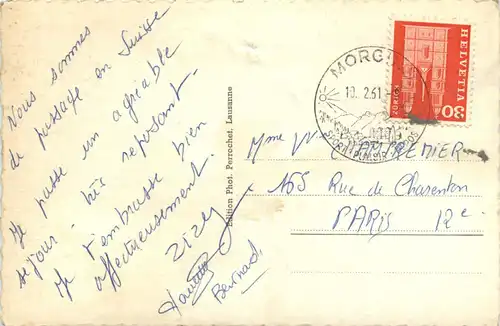 Nous sommes
de passage en Suisse
Je passe un agréable
séjour - très reposant -
Je t'embrasse bien
affectueusement.
Zizy
Bernard
Edition Phot. Perrochet, Lausanne
MORGI
10.2.61
HELVETIA
ZÜRICH
30
Mme Vve
165 Rue de Charenton
PARIS 12e